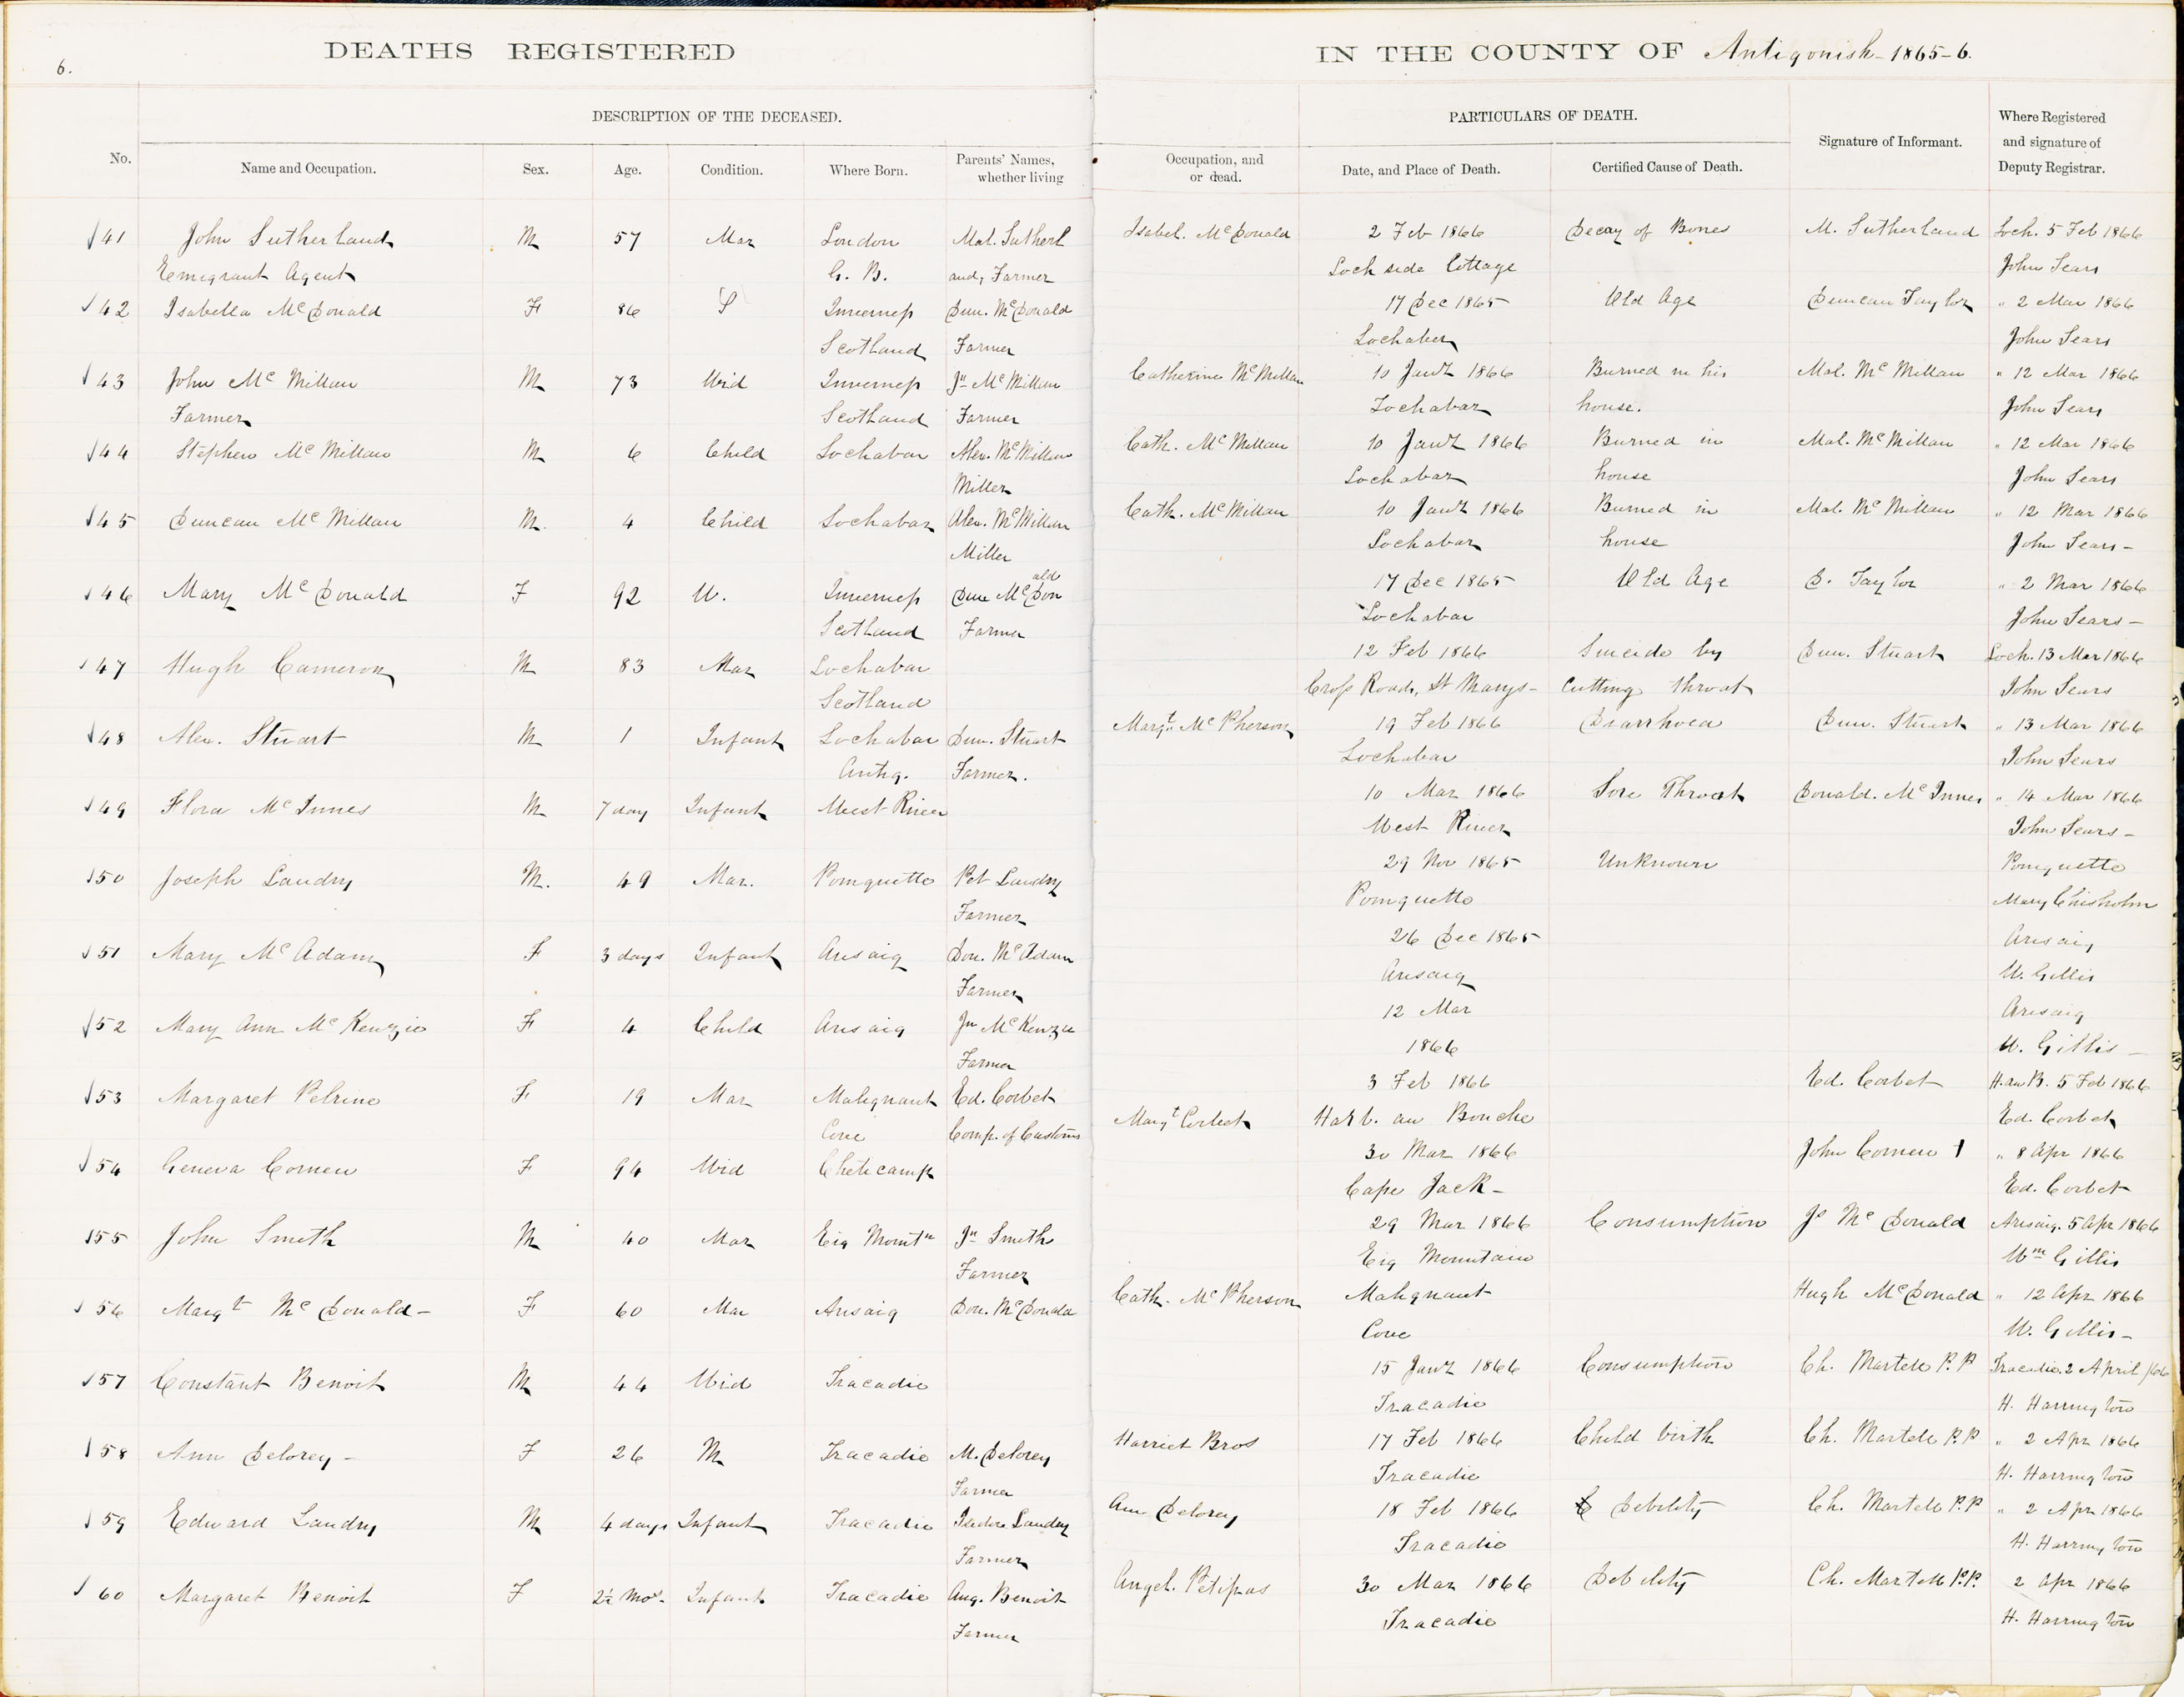 6.
DEATHS REGISTERED IN THE COUNTY OF Antigonish - 1865-6.
DESCRIPTION OF THE DECEASED. PARTICULARS OF DEATH. Signature of Informant. Where Registered and signature of Deputy Registrar.
No. Name and Occupation. Sex. Age. Condition. Where Born. Parents' Names, whether living Occupation, and or dead. Date, and Place of Death. Certified Cause of Death.
41 John Sutherland M 57 Mar London Mal. Sutherl Isabel. McDonald 2 Feb 1866 Decay of Bones M. Sutherland Loch. 5 Feb 1866
Emigrant Agent G. B. and, Farmer Loch side Cottage John Sears
42 Isabella McDonald F 86 S Inverness Dun. McDonald 17 Dec 1865 Old Age Duncan Taylor " 2 Mar 1866
Scotland Farmer Lochaber John Sears
43 John McMillan M 73 Wid Inverness Jn McMillan Catherine McMillan 10 Jany 1866 Burned in his Mal. McMillan " 12 Mar 1866
Farmer Scotland Farmer Lochabar house. John Sears
44 Stephen McMillan M 6 Child Lochabar Alex. McMillan Cath. McMillan 10 Jany 1866 Burned in Mal. McMillan " 12 Mar 1866
Miller Lochabar house John Sears
45 Duncan McMillan M. 4 Child Lochabar Alex. McMillan Cath. McMillan 10 Jany 1866 Burned in Mal. McMillan " 12 Mar 1866
Miller Lochabar house John Sears -
46 Mary McDonald F 92 W. Inverness Dun McDonald 17 Dec 1865 Old Age D. Taylor " 2 Mar 1866
Scotland Farmer Lochabar John Sears -
47 Hugh Cameron M 83 Mar Lochabar 12 Feb 1866 Suicide by Dun. Stuart Loch. 13 Mar 1866
Scotland Cross Roads, St Marys - Cutting throat John Sears
48 Alex. Stuart M 1 Infant Lochabar Dun. Stuart Margt. McPherson 19 Feb 1866 Diarrhoea Dun. Stuart " 13 Mar 1866
Antig. Farmer. Lochabar John Sears
49 Flora McInnes M 7 day Infant West River 10 Mar 1866 Sore Throat Donald. McInnes " 14 Mar 1866
West River John Sears -
50 Joseph Landry M. 49 Mar. Pomquette Pet Landry 29 Nov 1865 Unknown Pomquette
Farmer Pomquette Mary Chisholm
51 Mary McAdam F 3 days Infant Arisaig Don. McAdam 26 Dec 1865 Arisaig
Farmer Arisaig W. Gillis
52 Mary Ann McKenzie F 4 Child Arisaig Jn McKenzie 12 Mar Arisaig
Farmer 1866 W. Gillis -
53 Margaret Pelrine F 19 Mar Malignant Ed. Corbet 3 Feb 1866 Ed. Corbet H. au B. 5 Feb 1866
Cove Comp. of Customs Margt Corbet Harb. au Bouche Ed. Corbet
54 Geneva Comeu F 94 Wid Cheticamp 30 Mar 1866 John Comeu † " 8 Apr 1866
Cape Jack - Ed. Corbet
55 John Smith M 40 Mar Eig Mountn Jn Smith 29 Mar 1866 Consumption Js McDonald Arisaig. 5 Apr 1866
Farmer Eig Mountain Wm Gillis
56 Margt McDonald - F 60 Mar Arisaig Don. McDonald Cath. McPherson Malignant Hugh McDonald " 12 Apr 1866
Cove W. Gillis -
57 Constant Benoit M 44 Wid Tracadie 15 Jany 1866 Consumption Ch. Martell P. P Tracadie. 2 April /66
Tracadie H. Harrington
58 Ann Delorey - F 26 M Tracadie M. Delorey Harriet Bros 17 Feb 1866 Child birth Ch. Martell P. P " 2 Apr 1866
Farmer Tracadie H. Harrington
59 Edward Landry M 4 days Infant Tracadie Isidore Landry Ann Delorey 18 Feb 1866 Debility Ch. Martell P. P " 2 Apr 1866
Farmer Tracadie H. Harrington
60 Margaret Benoit F 2½ Mos. Infant Tracadie Aug. Benoit Angel. Petipas 30 Mar 1866 Debility Ch. Martell P.P. 2 Apr 1866
Farmer Tracadie H. Harrington